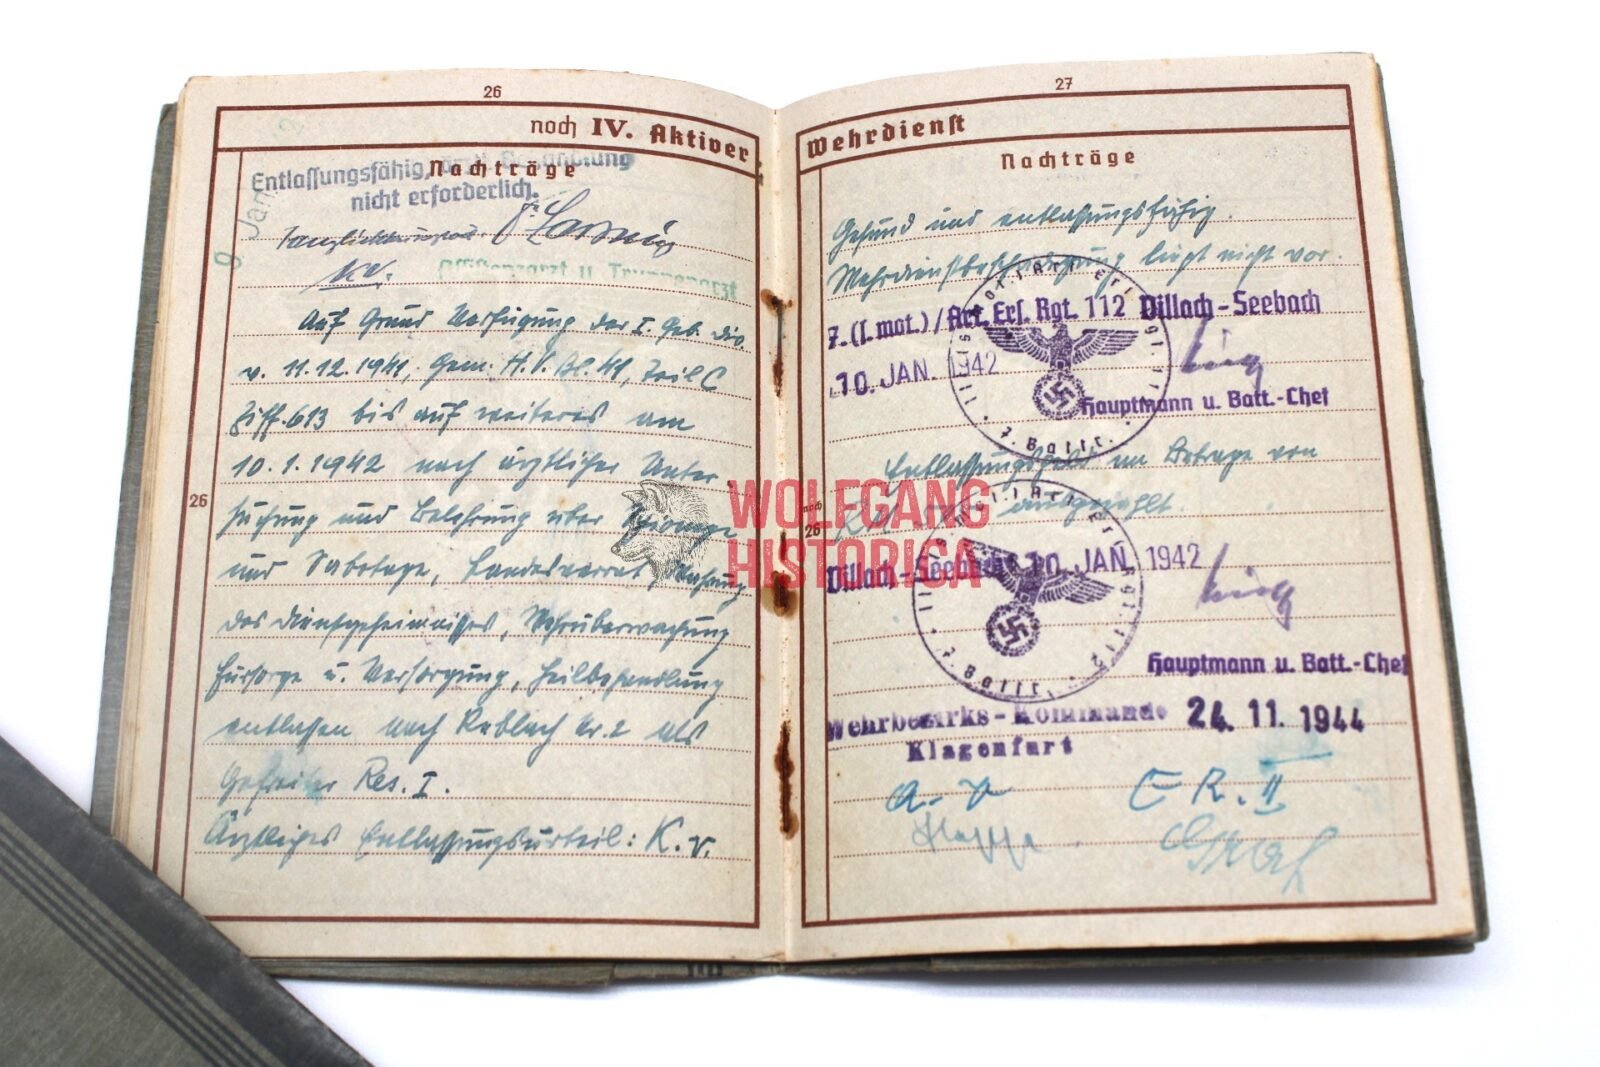 26
noch IV. Aktiver
Nachträge
Entlassungsfähig, ärztl. Behandlung
nicht erforderlich.
9. Jan.
kv.
Assistenzarzt u. Truppenarzt
Auf Grund Verfügung der I. Geb. Div.
v. 11.12.1941, gem. H.V.Bl. 41, Teil C
Ziff. 613 bis auf weiteres am
10.1.1942 nach ärztlicher Unter-
26
suchung und Belehrung über Spionage
und Sabotage, Landesverrat, Wahrung
des Dienstgeheimnisses, Wehrüberwachung
Fürsorge u. Versorgung, Heilbehandlung
entlassen nach Nr. 2 als
Gefreiter Res. I.
Ärztliches Entlassungsurteil: K.v.
27
Wehrdienst
Nachträge
Gesund und entlassungsfähig.
Wehrdienstbeschädigung liegt nicht vor.
7. (l. mot.) / Art. Ers. Rgt. 112 Villach-Seebach
10. JAN. 1942
Hauptmann u. Batt.-Chef
7. Battr.
Entlassungsgeld im Betrage von
noch
26
RM ausgezahlt.
Villach-Seebach 10. JAN. 1942
Hauptmann u. Batt.-Chef
Wehrbezirks-Kommando 24. 11. 1944
Klagenfurt
E R. II
WOLFGANG
HISTORICA